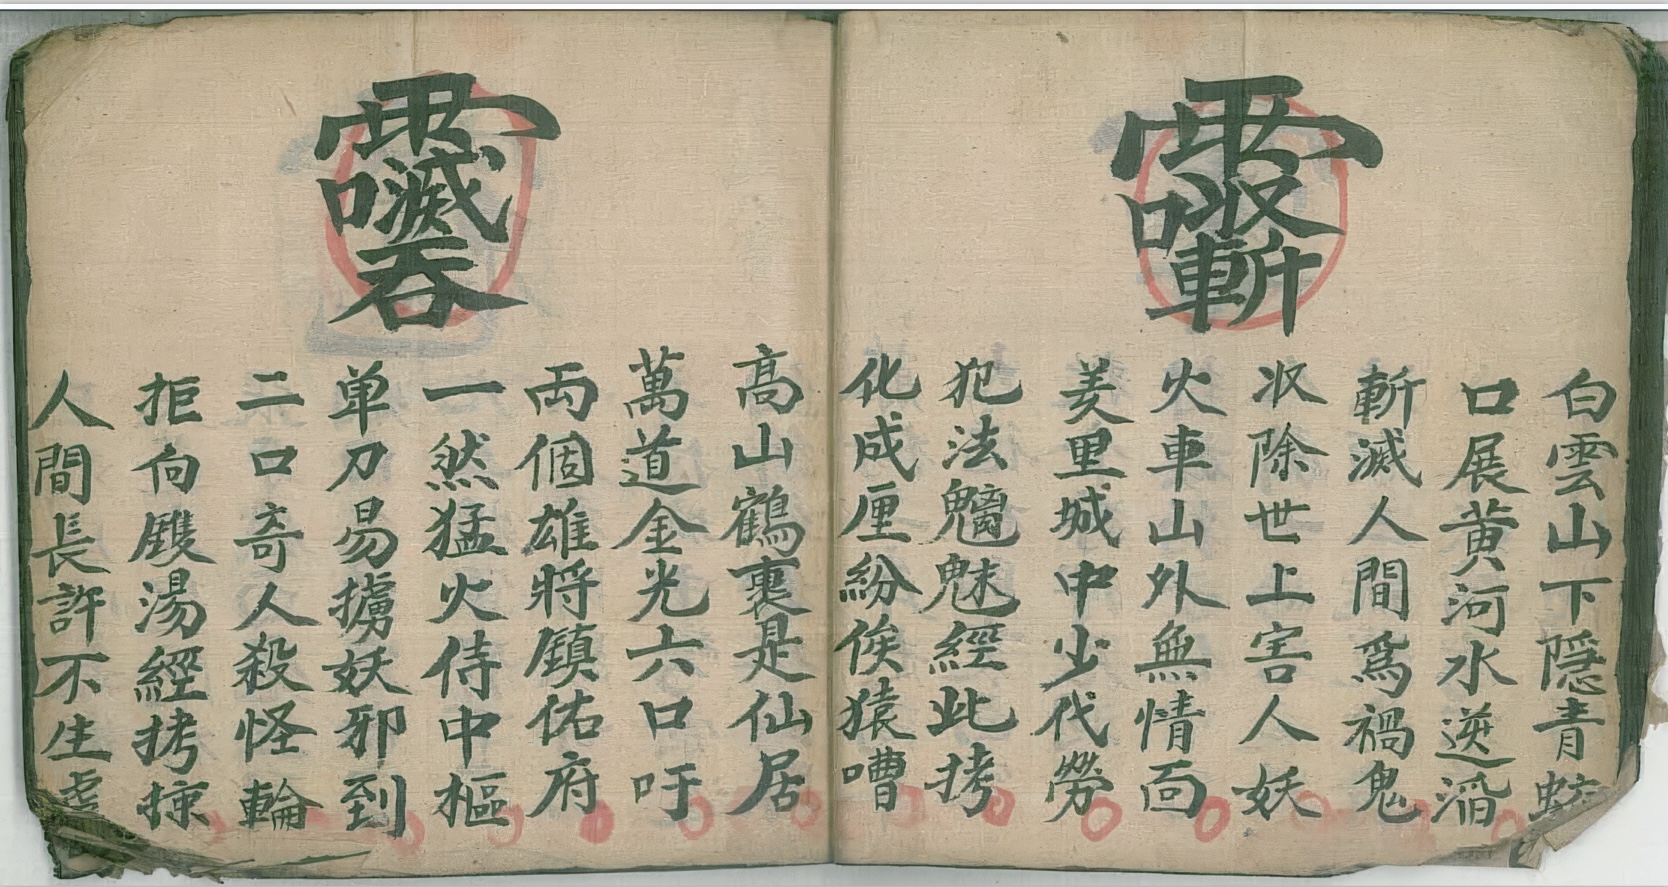 白雲山下隱青蛟
口展黃河水逆滔
斬滅人間爲禍鬼
収除世上害人妖
火車山外無情面
羑里城中少代勞
犯法魑魅經此拷
化成厘粉俟猿嘈
高山鶴裏是仙居
萬道金光六口吁
両個雄將鎮佑府
一然猛火侍中樞
单刀易擄妖邪到
二口奇人殺怪輪
拒向鑊湯經拷掠
人間長許不生